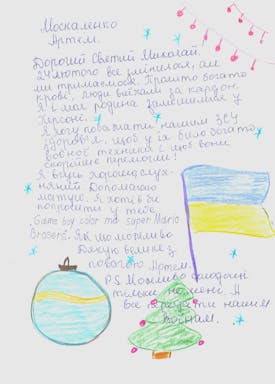 Москаленко
Артем.
Дорогий Святий Миколай.
24 лютого все змінилося, але
ми тримаємося. Пролито багато
крові, люди виїхали за кордон.
Я і моя родина залишилися у
Херсоні.
Я хочу побажати нашим ЗСУ
здоров'я, щоб у їх було багато
воєнної техніки і щоб вони
скоріше перемогли!
Я вчусь Допомагаю
матусі. Я хотів би
попросити у тебе
Game boy color та super Mario
Brosers. Як що можливо
Дякую велике з
повагою Артем.
P.S. Можливо солодощі
тільки не мені. А
все передати нашим
воїнам.